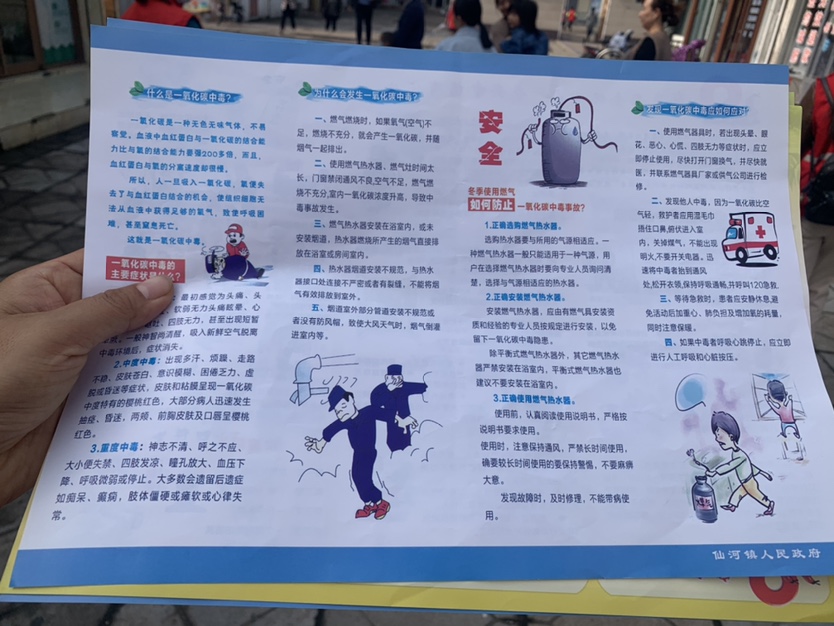 什么是一氧化碳中毒?
一氧化碳是一种无色无味气体，不易
察觉。血液中血红蛋白与一氧化碳的结合能
力比与氧的结合能力要强200多倍，而且，
血红蛋白与氧的分离速度却很慢。
所以，人一旦吸入一氧化碳，氧便失
去了与血红蛋白结合的机会，使组织细胞无
法从血液中获得足够的氧气，致使呼吸困
难，甚至窒息死亡。
这就是一氧化碳中毒。
一氧化碳中毒的
主要症状是什么?
最初感觉为头痛、头
软弱无力头痛眩晕、心
四肢无力，甚至出现短暂
一般神智尚清醒，吸入新鲜空气脱离
中毒环境后，症状消失。
2.中度中毒：出现多汗、烦躁、走路
不稳、皮肤苍白、意识模糊、困倦乏力、虚
脱或昏迷等症状，皮肤和粘膜呈现一氧化碳
中度特有的樱桃红色，大部分病人迅速发生
抽痉、昏迷，两颊、前胸皮肤及口唇呈樱桃
红色。
3.重度中毒：神志不清、呼之不应、
大小便失禁、四肢发凉、瞳孔放大、血压下
降、呼吸微弱或停止。大多数会遗留后遗症
如痴呆、癫痫，肢体僵硬或瘫软或心律失
常。
为什么会发生一氧化碳中毒?
一、燃气燃烧时，如果氧气(空气)不
足，燃烧不充分，就会产生一氧化碳，并随
烟气一起排出。
二、使用燃气热水器、燃气灶时间太
长、门窗禁闭通风不良,空气不足，燃气燃
烧不充分,室内一氧化碳浓度升高，导致中
毒事故发生。
三、燃气热水器安装在浴室内，或未
安装烟道，热水器燃烧所产生的烟气直接排
放在浴室或房间室内。
四、热水器烟道安装不规范，与热水
器接口处连接不严密或者有裂缝，不能将烟
气有效排放到室外。
五、烟道室外部分管道安装不规范或
者没有防风帽，致使大风天气时，烟气倒灌
进室内等。
安全
冬季使用燃气
如何防止一氧化碳中毒事故?
1.正确选购燃气热水器。
选购热水器要与所用的气源相适应。一
种燃气热水器一般只能适用于一种气源，用
户在选择燃气热水器时要向专业人员询问清
楚，选择与气源相适应的热水器。
2.正确安装燃气热水器。
安装燃气热水器，应由有燃气具安装资
质和经验的专业人员按规定进行安装，以免
留下一氧化碳中毒隐患。
除平衡式燃气热水器外，其它燃气热水
器严禁安装在浴室内，平衡式燃气热水器也
建议不要安装在浴室内。
3.正确使用燃气热水器。
使用前，认真阅读使用说明书，严格按
说明书要求使用。
使用时，注意保持通风，严禁长时间使用，
确要较长时间使用的要保持警惕，不要麻痹
大意。
发现故障时，及时修理，不能带病使
用。
发现一氧化碳中毒应如何应对
一、使用燃气器具时，若出现头晕、眼
花、恶心、心慌，四肢无力等症状时，应立
即停止使用，尽快打开门窗换气，并尽快就
医，并联系燃气器具厂家或供气公司进行检
修。
二、发现他人中毒，因为一氧化碳比空
气轻，救护者应用湿毛巾
捂住口鼻,俯伏进入室
内，关掉煤气，不能出现
明火,不要开关电器。迅
速将中毒者抬到通风
处,松开衣领,保持呼吸通畅,并呼叫120急救。
三、等待急救时，患者应安静休息,避
免活动后加重心、肺负担及增加氧的耗量，
同时注意保暖。
四、如果中毒者呼吸心跳停止，应立即
进行人工呼吸和心脏按压。
仙河镇人民政府